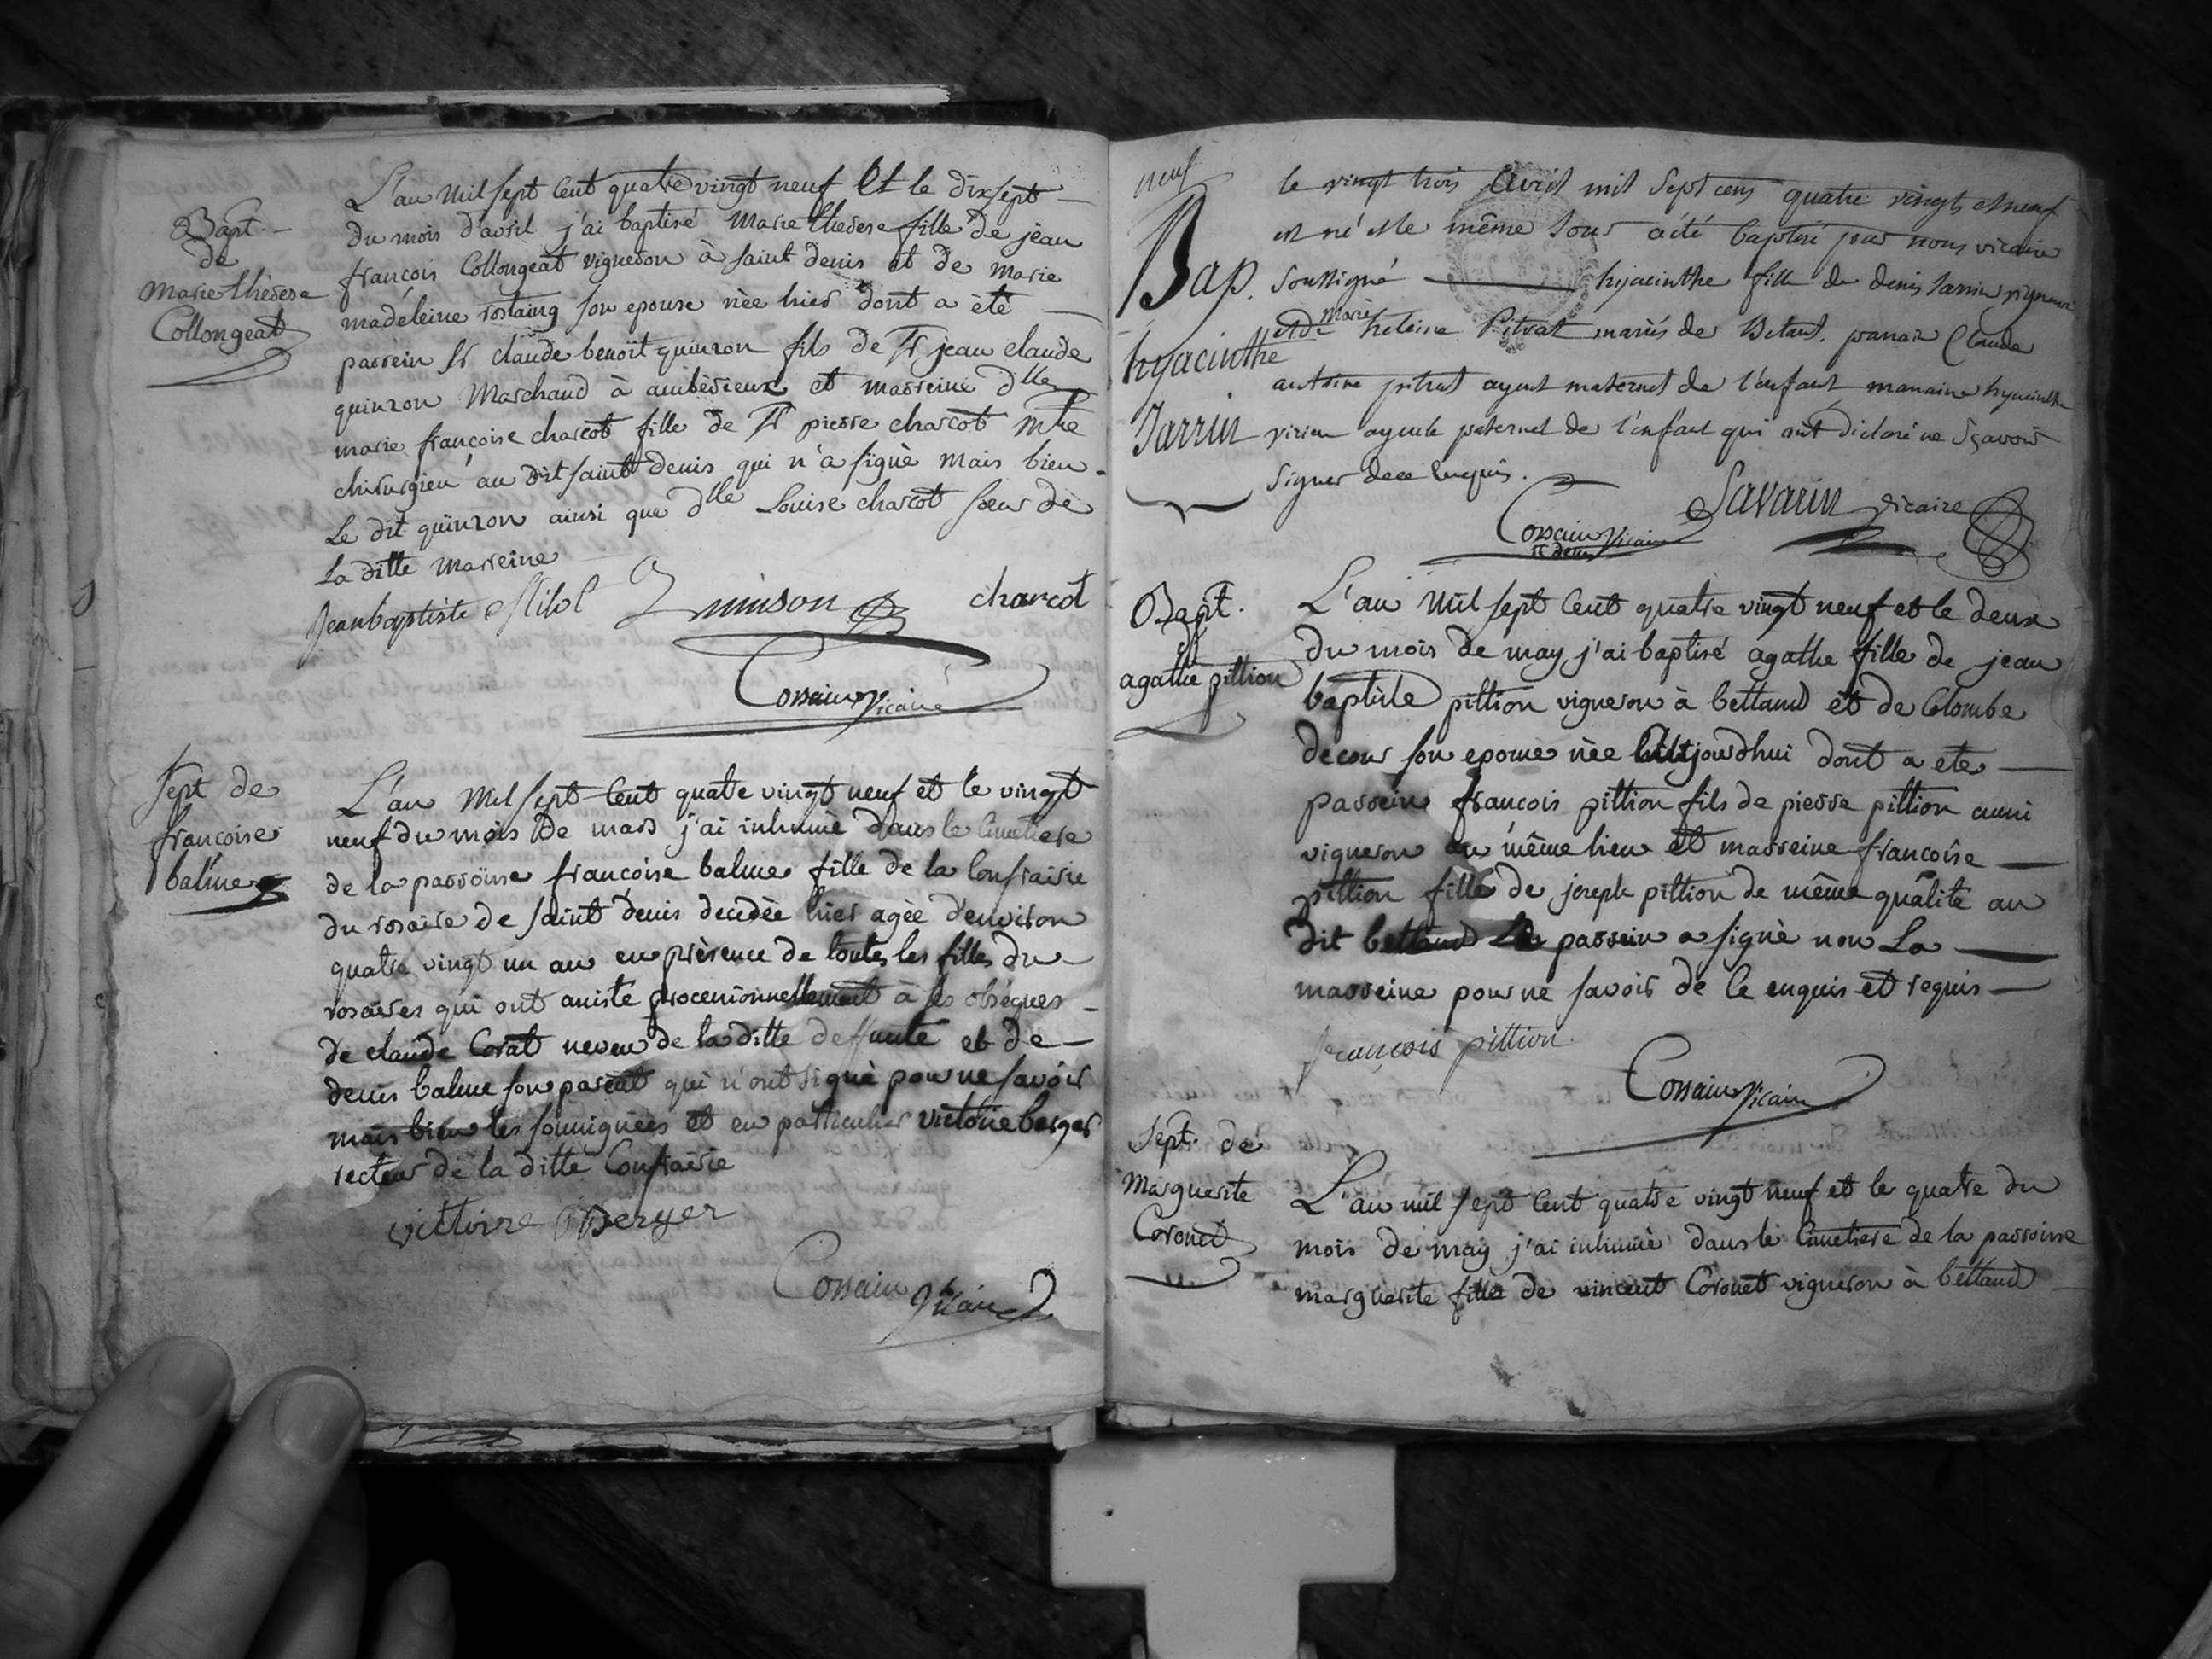 Bapt.
de
Marie thérèse
Collongeat
L'an mil sept cent quatre vingt neuf Et le dix sept
du mois d'avril j'ai baptisé marie thérèse fille de jean
françois Collongeat vigneron à saint denis et de marie
madeleine rostaing son epouse née hier dont a été
parrein Sr claude benoit quinson fils de Sr jean claude
quinson Marchand à ambérieux et marreine dlle
marie françoise charcot fille de Sr pierre charcot mtre
chirurgien au dit saint denis qui n'a signé mais bien
Le dit quinson ainsi que dlle Louise charcot soeur de
La ditte marreine
Jean baptiste
quinson
charcot
Corsain vicaire
sept de
francoise
balme
L'an mil sept Cent quatre vingt neuf et le vingt
neuf du mois de mars j'ai inhumé dans le Cimetiere
de la parroisse francoise balme fille de la Confrairie
du rosaire de saint denis decedée hier agée d'environ
quatre vingt un an en présence de toutes les filles du
rosaires qui ont assisté processionnellement à ses obséques
de claude Corat neveu de la ditte deffunte et de
denis balme son parent qui n'ont signé pour ne savoir
mais bien les soussignées et en particulier victoire berger
recteur de la ditte Confrairie
victoire Berger
Corsain vicaire
neuf
Bap.
hyacinthe
Jarrin
le vingt trois Avril mil Sept cens quatre vingts et neuf
est né et le même Jour a été baptisé par nous vicaire
soussigné hyacinthe fille de denis Jarrin vigneron
et de Marie heleine Pitrat mariés de Betant. parrain Claude
antoine pitrat ayeul maternel de l'enfant marraine hyacinthe
ayeule paternel de l'enfant qui ont déclaré ne Sçavoir
signer de ce enquis.
Corsain vicaire
St denis
Savarin vicaire
Bapt.
d'
agathe pittion
L'an mil sept Cent quatre vingt neuf et le deux
du mois de may j'ai baptisé agathe fille de jean
baptiste pittion vigneron à bettand et de Colombe
decour son epouse née aujourdhui dont a ete
parrein francois pittion fils de pierre pittion aussi
vigneron au même lieu et marreine francoise
pittion fille de joseph pittion de même qualité au
dit bettand Le parrein a signé non La
marreine pour ne savoir de Ce enquis et requis
françois pittion
Corsain vicaire
Sept. de
Marguerite
Coronet
L'an mil sept Cent quatre vingt neuf et le quatre du
mois de may j'ai inhumé dans le Cimetiere de la parroisse
marguerite fille de vincent Coronet vigneron à bettand